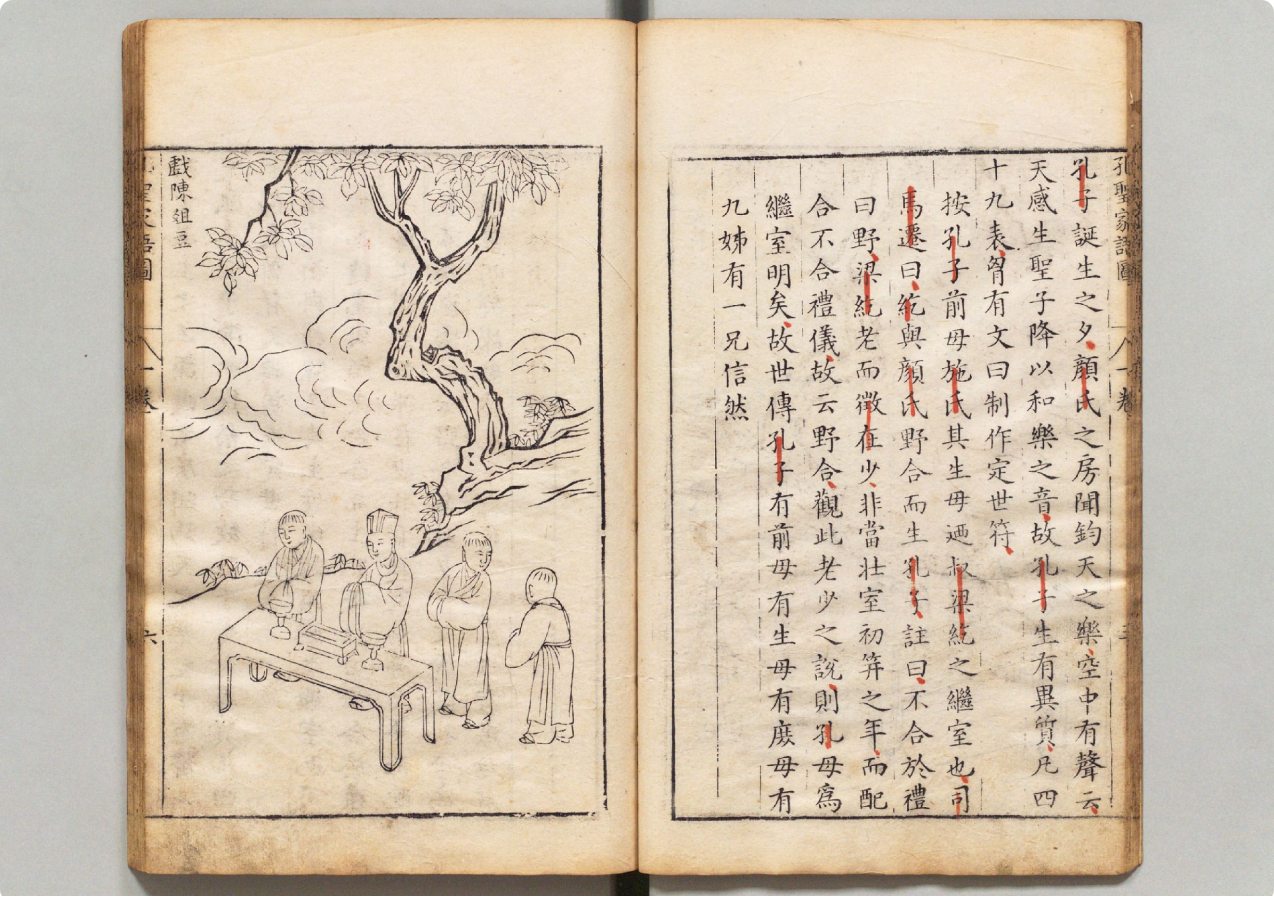 孔聖家語圖 八一卷
孔子誕生之夕顏氏之房聞鈞天之樂空中有聲云
天感生聖子降以和樂之音故孔子生有異質凡四
十九表胷有文曰制作定世符
按孔子前母施氏其生母廼叔梁紇之繼室也司
馬遷曰紇與顏氏野合而生孔子註曰不合於禮
曰野梁紇老而徵在少非當壯室初笄之年而配
合不合禮儀故云野合觀此老少之說則孔母爲
繼室明矣故世傳孔子有前母有生母有庶母有
九姊有一兄信然
戲陳俎豆
聖家語圖 一卷 六